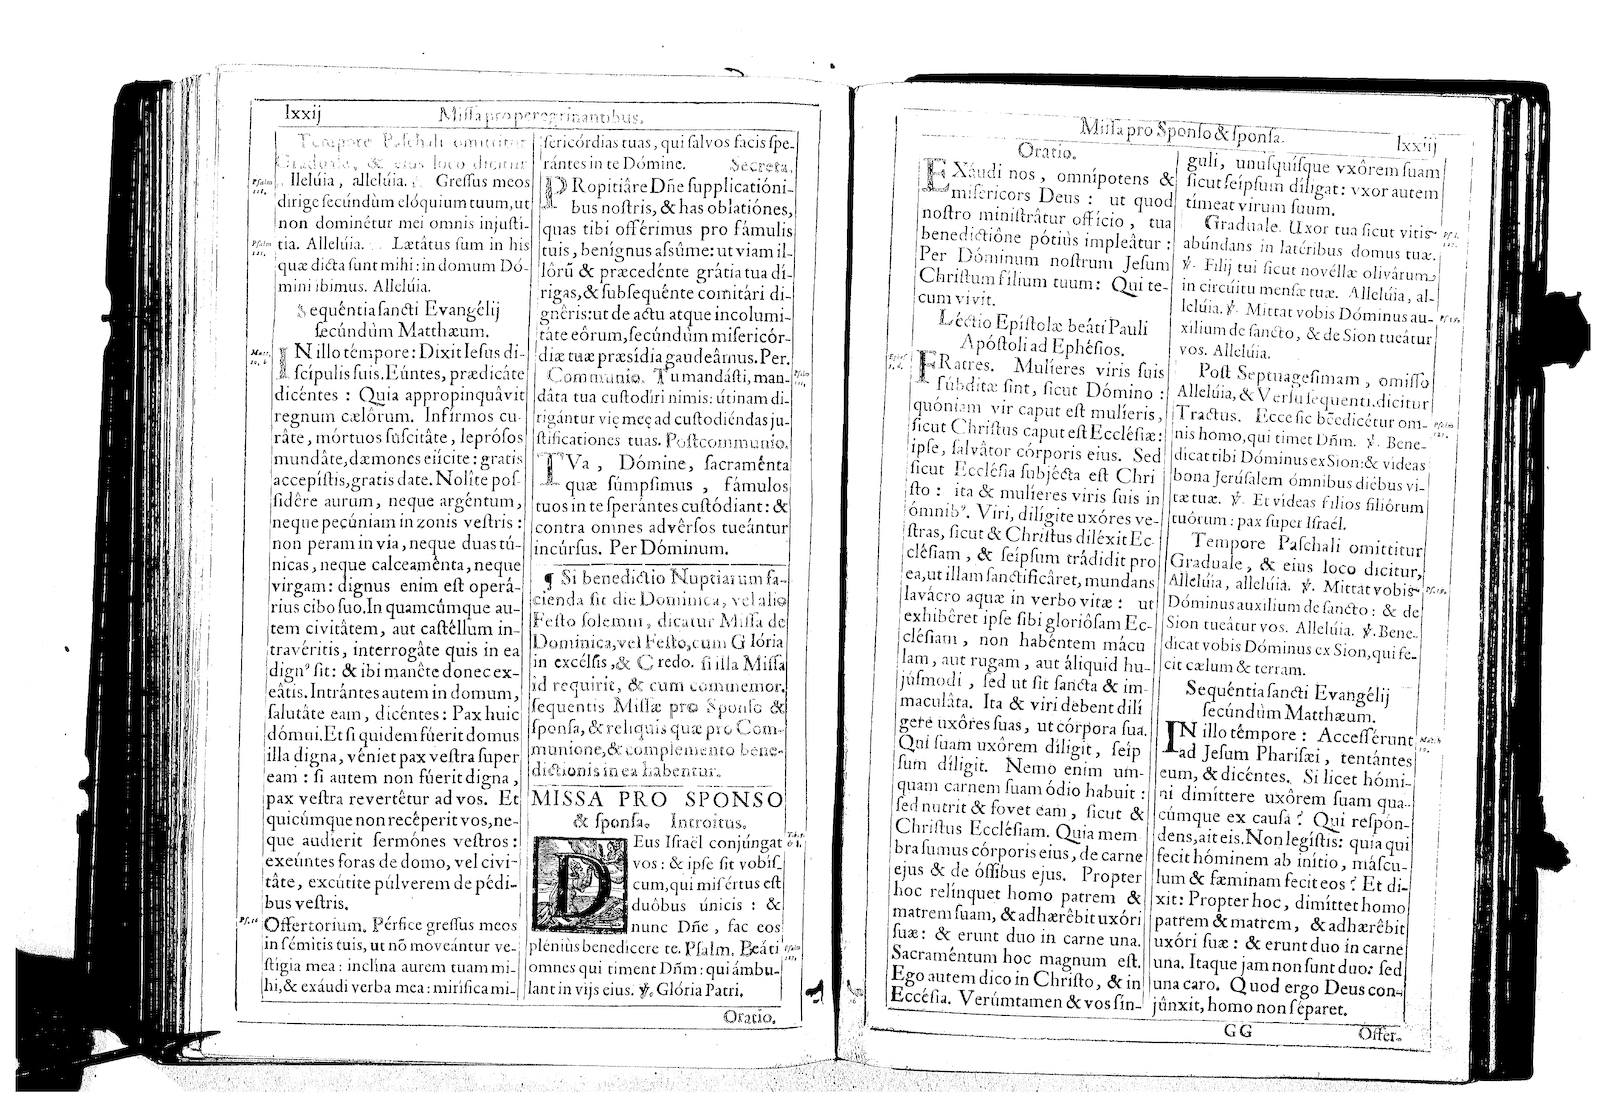 lxxij Missa pro peregrinantibus.
Tempore Paschali omittitur
Graduale, & eius loco dicitur
lleluia, allelúia. Gressus meos
dirige secúndùm elóquium tuum, ut
non dominétur mei omnis injusti-
tia. Allelúia. Lætâtus sum in his
quæ dicta sunt mihi: in domum Dó-
mini ibimus. Allelúia.
Sequéntia sancti Evangélij
secúndùm Matthæum.
IN illo témpore: Dixit Iesus di-
scípulis suis. Eúntes, prædicâte
dicéntes: Quia appropinquâvit
regnum cælôrum. Infírmos cu-
râte, mórtuos suscitâte, leprósos
mundâte, dæmones eiícite: gratis
accepístis, gratis date. Nolîte pos-
sidêre aurum, neque argéntum,
neque pecúniam in zonis vestris:
non peram in via, neque duas tú-
nicas, neque calceaménta, neque
virgam: dignus enim est operá-
rius cibo suo. In quamcúmque au-
tem civitâtem, aut castéllum in-
travéritis, interrogâte quis in ea
dignꝰ sit: & ibi manête donec ex-
eâtis. Intrántes autem in domum,
salutâte eam, dicéntes: Pax huic
dómui. Et si quidem fúerit domus
illa digna, véniet pax vestra super
eam: si autem non fúerit digna,
pax vestra revertêtur ad vos. Et
quicúmque non recéperit vos, ne-
que audíerit sermónes vestros:
exeúntes foras de domo, vel civi-
tâte, excútite púlverem de pédi-
bus vestris.
Offertorium. Pérfice gressus meos
in sémitis tuis, ut nō moveántur ve-
stigia mea: inclîna aurem tuam mi-
hi, & exáudi verba mea: mirífica mi-
sericórdias tuas, qui salvos facis spe-
rántes in te Dómine. Secreta.
PRopitiâre Dñe supplicatióni-
bus nostris, & has oblatiónes,
quas tibi offérimus pro fámulis
tuis, benígnus assûme: ut viam il-
lôrū & præcedénte grátia tua dí-
rigas, & subsequénte comitári di-
gnêris: ut de actu atque incolumi-
táte eôrum, secúndum misericór-
diæ tuæ præsídia gaudeâmus. Per.
Communio. Tu mandásti, man-
dáta tua custodiri nimis: útinam di-
rigántur vię meę ad custodiéndas ju-
stificationes tuas. Postcommunio.
TVa, Dómine, sacraménta
quæ súmpsimus, fámulos
tuos in te sperántes custódiant: &
contra omnes advêrsos tueántur
incúrsus. Per Dóminum.
¶ Si benedictio Nuptiarum fa-
cienda sit die Dominica, vel alio
Festo solemni, dicatur Missa de
Dominica, vel Festo, cum Glória
in excélsis, & Credo. si illa Missa
id requirit, & cum commemor.
sequentis Missæ pro Sponso &
sponsa, & reliquis quæ pro Com-
munione, & complemento bene-
dictionis in ea habentur.
MISSA PRO SPONSO
& sponsa. Introitus.
DEus Israël conjúngat
vos: & ipse sit vobis-
cum, qui misértus est
duôbus únicis: &
nunc Dñe, fac eos
pléniùs benedicere te. Psalm. Beáti
omnes qui timent Dñm: qui ámbu-
lant in vijs eius. ℣. Glória Patri.
Oratio.
Missa pro Sponso & sponsa. lxxiij
Oratio.
EXáudi nos, omnípotens &
misericors Deus: ut quod
nostro ministrâtur offício, tua
benedictiône pótiùs impleâtur:
Per Dóminum nostrum Jesum
Christum fílium tuum: Qui te-
cum vivit.
Léctio Epístolæ beáti Pauli
Apóstoli ad Ephésios.
FRatres. Mulíeres viris suis
súbditæ sint, sicut Dómino:
quóniam vir caput est mulíeris,
sicut Christus caput est Ecclésiæ:
ipse, salvâtor córporis eius. Sed
sicut Ecclésia subjécta est Chri
sto: ita & mulíeres viris suis in
ómnibꝰ. Viri, díligite uxóres ve-
stras, sicut & Christus diléxit Ec-
clésiam, & seípsum trádidit pro
ea, ut illam sanctificâret, mundans
lavácro aquæ in verbo vitæ: ut
exhibêret ipse sibi gloriôsam Ec-
clésiam, non habéntem mácu
lam, aut rugam, aut áliquid hu-
júsmodi, sed ut sit sancta & im-
maculâta. Ita & viri debent díli
gere uxôres suas, ut córpora sua.
Qui suam uxôrem díligit, seip
sum díligit. Nemo enim um-
quam carnem suam ódio habuit:
sed nutrit & fovet eam, sicut &
Christus Ecclésiam. Quia mem
bra sumus córporis eius, de carne
ejus & de óssibus ejus. Propter
hoc relínquet homo patrem &
matrem suam, & adhærêbit uxóri
suæ: & erunt duo in carne una.
Sacraméntum hoc magnum est.
Ego autem dico in Christo, & in
Eccésia. Verúmtamen & vos sín-
guli, unusquísque vxôrem suam
sicut seípsum díligat: vxor autem
tímeat virum suum.
Graduale. Uxor tua sicut vitis
abúndans in latéribus domus tuæ.
℣. Filij tui sicut novéllæ olivárum
in circúitu mensæ tuæ. Allelúia, al-
leluia. ℣. Mittat vobis Dóminus au-
xílium de sancto, & de Sion tueátur
vos. Allelúia.
Post Septuagesimam, omisso
Alleluia, & Versu sequenti, dicitur
Tractus. Ecce sic bēdicétur om-
nis homo, qui timet Dñm. ℣. Bene-
dicat tibi Dóminus ex Sion: & videas
bona Jerúsalem ómnibus diébus vi-
tæ tuæ. ℣. Et videas filios filiórum
tuórum: pax super Israél.
Tempore Paschali omittitur
Graduale, & eius loco dicitur,
Allelúia, allelúia. ℣. Mittat vobis
Dóminus auxilium de sancto: & de
Sion tueátur vos. Allelúia. ℣. Bene-
dicat vobis Dóminus ex Sion, qui fe-
cit cælum & terram.
Sequéntia sancti Evangélij
secúndùm Matthæum.
IN illo témpore: Accessérunt
ad Jesum Pharisæi, tentántes
eum, & dicéntes. Si licet hómi-
ni dimíttere uxôrem suam qua-
cúmque ex causa? Qui respón-
dens, ait eis. Non legístis: quia qui
fecit hóminem ab inítio, máscu-
lum & fæminam fecit eos? Et di-
xit: Propter hoc, dimíttet homo
patrem & matrem, & adhærêbit
uxóri suæ: & erunt duo in carne
una. Itaque jam non sunt duo: sed
una caro. Quod ergo Deus con-
júnxit, homo non séparet.
GG Offer.